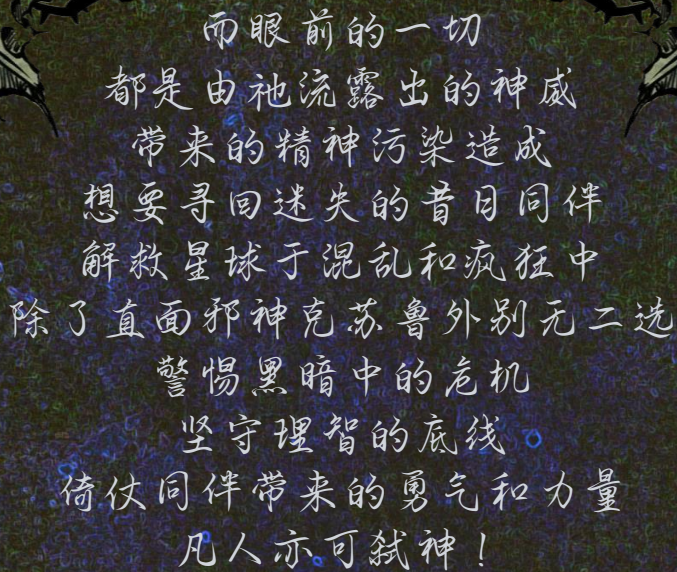 而眼前的一切
都是由祂流露出的神威
带来的精神污染造成
想要寻回迷失的昔日同伴
解救星球于混乱和疯狂中
除了直面邪神克苏鲁外别无二选
警惕黑暗中的危机
坚守理智的底线
倚仗同伴带来的勇气和力量
凡人亦可弑神！